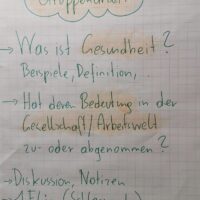 Gruppenarbeit
→ Was ist Gesundheit?
Beispiele, Definition, ...
→ Hat deren Bedeutung in der
Gesellschaft/Arbeitswelt
zu- oder abgenommen?
→ Diskussion, Notizen